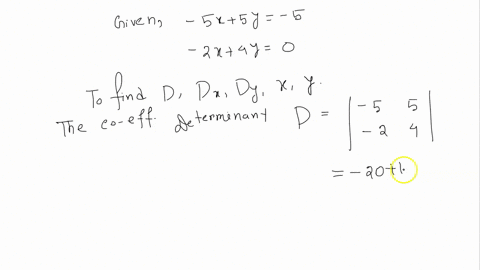 Given, -5x+5y=-5
-2x+4y=0
To find D, Dx, Dy, x, y.
The co-eff. determinant D = | -5 5 |
| -2 4 |
= -20+